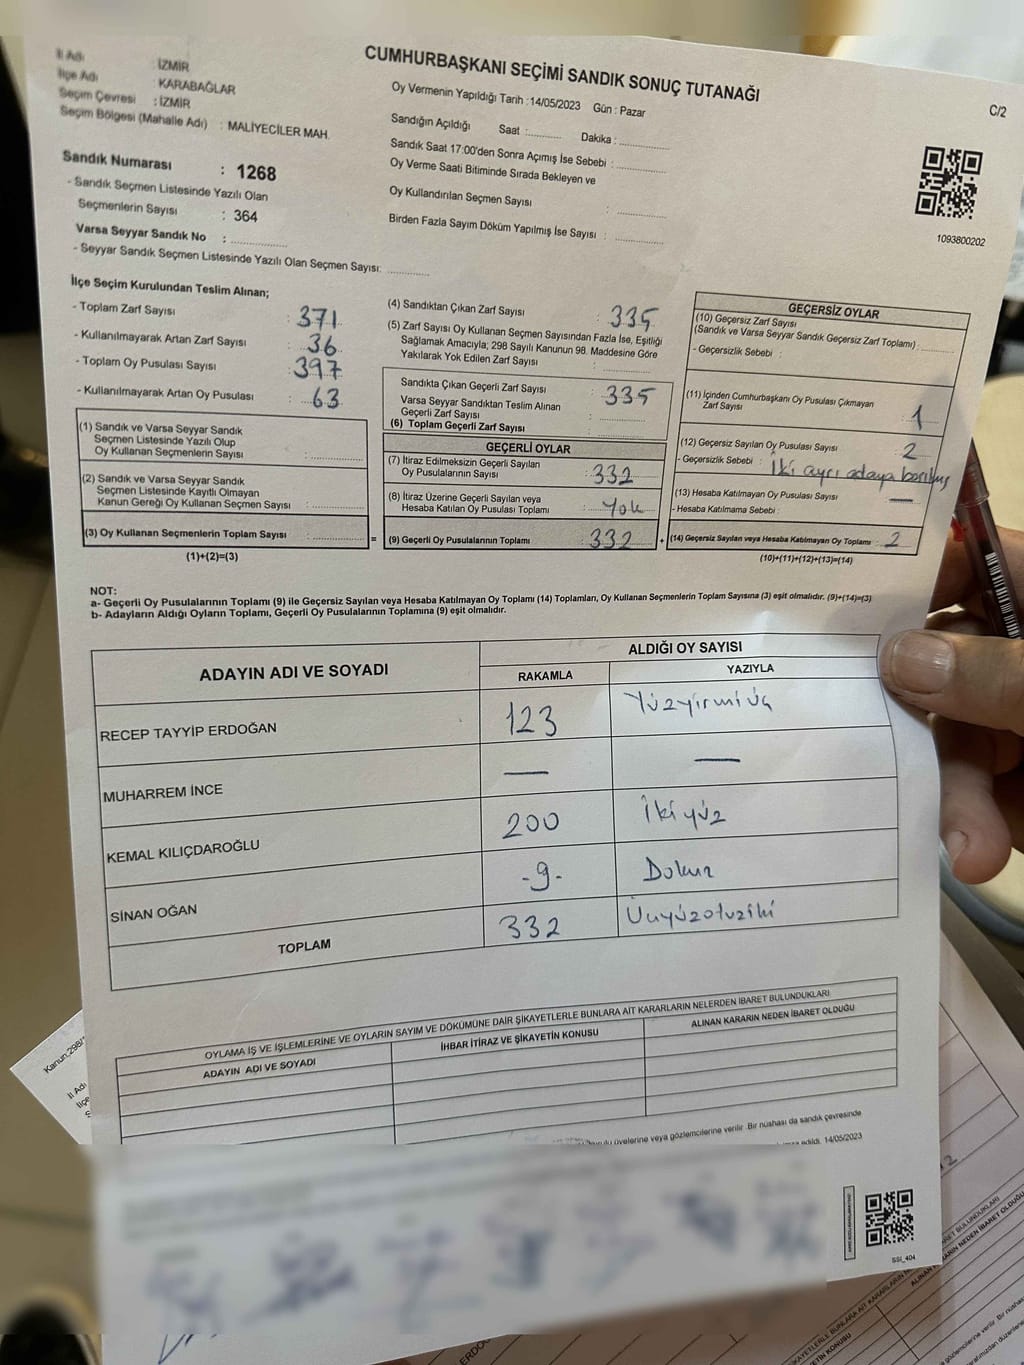 CUMHURBAŞKANI SEÇİMİ SANDIK SONUÇ TUTANAĞI
C/2
İl Adı : İZMİR
İlçe Adı : KARABAĞLAR
Seçim Çevresi : İZMİR
Seçim Bölgesi (Mahalle Adı) : MALİYECİLER MAH.
Sandık Numarası : 1268
- Sandık Seçmen Listesinde Yazılı Olan
Seçmenlerin Sayısı : 364
Varsa Seyyar Sandık No : ..............
- Seyyar Sandık Seçmen Listesinde Yazılı Olan Seçmen Sayısı: ..............
Oy Vermenin Yapıldığı Tarih : 14/05/2023 Gün : Pazar
Sandığın Açıldığı Saat :........... Dakika : ..............
Sandık Saat 17:00'den Sonra Açımış İse Sebebi : ..............
Oy Verme Saati Bitiminde Sırada Bekleyen ve
Oy Kullandırılan Seçmen Sayısı : ..............
Birden Fazla Sayım Döküm Yapılmış İse Sayısı : ..............
1093800202
İlçe Seçim Kurulundan Teslim Alınan;
- Toplam Zarf Sayısı : 371
- Kullanılmayarak Artan Zarf Sayısı : 36
- Toplam Oy Pusulası Sayısı : 397
- Kullanılmayarak Artan Oy Pusulası : 63
(1) Sandık ve Varsa Seyyar Sandık
Seçmen Listesinde Yazılı Olup
Oy Kullanan Seçmenlerin Sayısı : ..............
(2) Sandık ve Varsa Seyyar Sandık
Seçmen Listesinde Kayıtlı Olmayan
Kanun Gereği Oy Kullanan Seçmen Sayısı : ..............
(3) Oy Kullanan Seçmenlerin Toplam Sayısı : .............. =
(1)+(2)=(3)
(4) Sandıktan Çıkan Zarf Sayısı : 335
(5) Zarf Sayısı Oy Kullanan Seçmen Sayısından Fazla İse, Eşitliği
Sağlamak Amacıyla; 298 Sayılı Kanunun 98. Maddesine Göre
Yakılarak Yok Edilen Zarf Sayısı : ..............
Sandıkta Çıkan Geçerli Zarf Sayısı : 335
Varsa Seyyar Sandıktan Teslim Alınan
Geçerli Zarf Sayısı : ..............
(6) Toplam Geçerli Zarf Sayısı : ..............
GEÇERLİ OYLAR
(7) İtiraz Edilmeksizin Geçerli Sayılan
Oy Pusulalarının Sayısı : 332
(8) İtiraz Üzerine Geçerli Sayılan veya
Hesaba Katılan Oy Pusulası Toplamı : Yok
(9) Geçerli Oy Pusulalarının Toplamı : 332 +
GEÇERSİZ OYLAR
(10) Geçersiz Zarf Sayısı
(Sandık ve Varsa Seyyar Sandık Geçersiz Zarf Toplamı) : ..........
- Geçersizlik Sebebi :
(11) İçinden Cumhurbaşkanı Oy Pusulası Çıkmayan
Zarf Sayısı : 1
(12) Geçersiz Sayılan Oy Pusulası Sayısı : 2
- Geçersizlik Sebebi : İki ayrı adaya
(13) Hesaba Katılmayan Oy Pusulası Sayısı : —
- Hesaba Katılmama Sebebi :
(14) Geçersiz Sayılan veya Hesaba Katılmayan Oy Toplamı : 2
(10)+(11)+(12)+(13)=(14)
NOT:
a- Geçerli Oy Pusulalarının Toplamı (9) ile Geçersiz Sayılan veya Hesaba Katılmayan Oy Toplamı (14) Toplamları, Oy Kullanan Seçmenlerin Toplam Sayısına (3) eşit olmalıdır. (9)+(14)=(3)
b- Adayların Aldığı Oyların Toplamı, Geçerli Oy Pusulalarının Toplamına (9) eşit olmalıdır.
ADAYIN ADI VE SOYADI
ALDIĞI OY SAYISI
RAKAMLA YAZIYLA
RECEP TAYYİP ERDOĞAN 123 Yüzyirmiüç
MUHARREM İNCE — —
KEMAL KILIÇDAROĞLU 200 İkiyüz
SİNAN OĞAN -9- Dokuz
TOPLAM 332 Üçyüzotuziki
OYLAMA İŞ VE İŞLEMLERİNE VE OYLARIN SAYIM VE DÖKÜMÜNE DAİR ŞİKAYETLERLE BUNLARA AİT KARARLARIN NELERDEN İBARET BULUNDUKLARI
ADAYIN ADI VE SOYADI İHBAR İTİRAZ VE ŞİKAYETİN KONUSU ALINAN KARARIN NEDEN İBARET OLDUĞU
üyelerine veya gözlemcilerine verilir. Bir nüshası da sandık çevresinde
edildi. 14/05/2023
SSİ_404
Kanun 298/
İl Adı